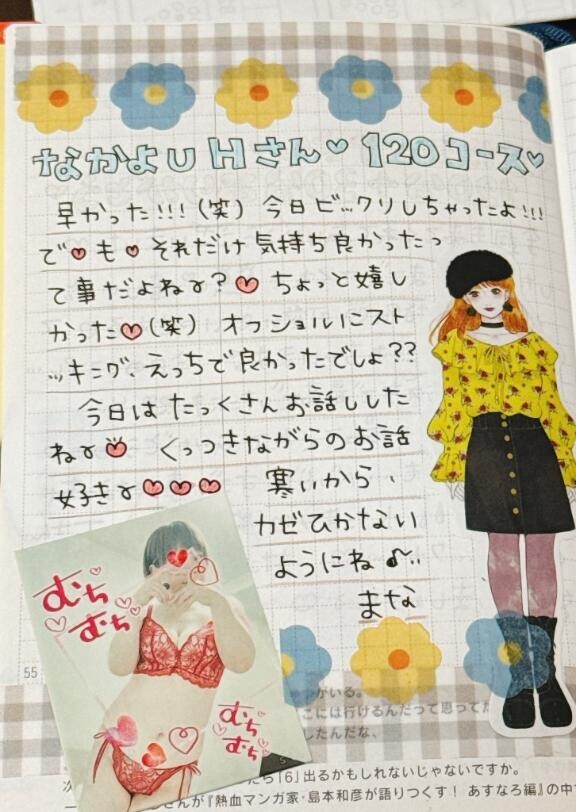 なかよしHさん♡ 120コース♡
早かった!!!(笑) 今日ビックリしちゃったよ!!!
で♥も♥それだけ気持ち良かったっ
て事だよねγ?♥ ちょっと嬉し
かった♥(笑) オフショルにスト
ッキング、えっちで良かったでしょ??
今日はたっくさんお話しした
ねγ♥ くっつきながらのお話
好きγ♥♥♥ 寒いから、
カゼひかない
ようにね♪
まな
むち
むち
むち
むち
55
がいる。
こには行けるんだって思ってた
したんだな、
たら「6」出るかもしれないじゃないですか。
さんが『熱血マンガ家・島本和彦が語りつくす! あすなろ編』の中